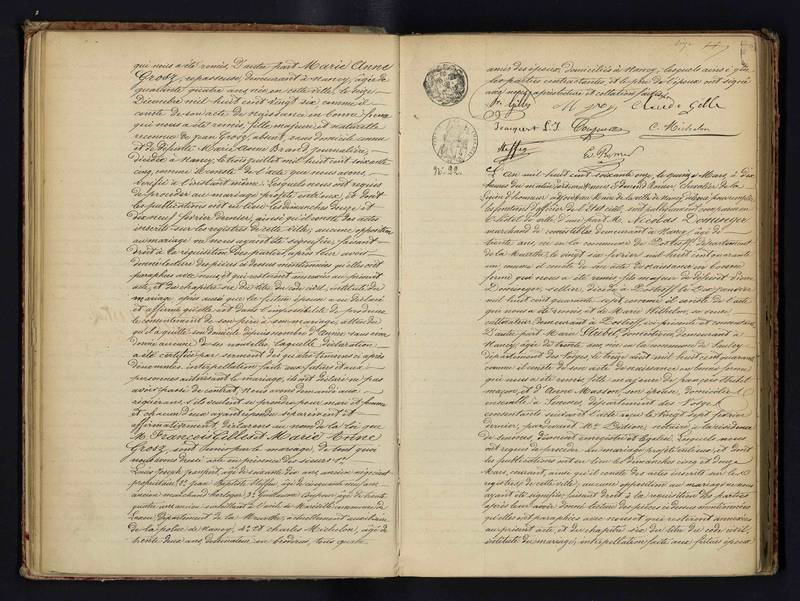 qui nous a été remis, D'autre part Marie Anne
Grosz, repasseuse, demeurant à Nancy, âgée de
quarante quatre ans née en cette ville, le seize
Décembre mil huit cent vingt six comme il
conste de son acte de naissance en bonne forme
qui nous a été remis, fille majeure et naturelle
reconnue de Jean Grosz, absent, sans domicile connu
et de défunte Marie Anne Brand, journalière,
décédée à Nancy, le trois juillet mil huit cent soixante
cinq, comme il conste de l'acte que nous avons
vérifié à l'instant même. Lesquels nous ont requis
de procéder au mariage projeté entr'eux, et dont
les publications ont eu lieu les dimanches douze et
dix neuf février dernier, ainsi qu'il conste des actes
inscrits sur les registres de cette ville, aucune opposition
au mariage ne nous ayant été signifiée, faisant
droit à la réquisition des parties, après leur avoir
donné lecture des pièces ci dessus mentionnées qu'elles ont
paraphées avec nous et qui resteront annexées au présent
acte, et du chapitre six du titre du code civil, intitulé du
mariage, après aussi que la future épouse a eu déclaré
et affirmé qu'elle est dans l'impossibilité de produire
le consentement de son père à son mariage, attendu
qu'il a quitté son domicile depuis nombre d'années sans avoir
donné aucune de ses nouvelles, laquelle déclaration
a été certifiée par serment des quatre témoins ci après
dénommés. interpellation faite aux futurs et aux
personnes autorisant le mariage, ils ont déclaré ne pas
avoir passé de contrat, nous avons demandé aux
requérans s'ils veulent se prendre pour mari et femme
et chacun d'eux ayant répondu séparément et
affirmativement, déclarons au nom de la loi que
M. François Gillé et Marie Anne
Grosz, sont unis par le mariage; de tout quoi
nous avons dressé acte en présence des sieurs
Louis Joseph Jeanpert, âgé de soixante dix ans, ancien négociant
propriétaire, 2° Jean Baptiste Steffin, âgé de cinquante neuf ans
ancien marchand horloger, 3° Guillaume
quatre ans, ancien
Département de la Meurthe, actuellement auxiliaire
de la place de Nancy, & 4° Charles Michelon, âgé de
trente deux ans, dessinateur en broderies, tous quatre
amis des époux, domiciliés à Nancy, lesquels ainsi que
les parties contractantes, et le père de l'époux ont signé
avec nous après lecture et collation faites
Claude Gillé
C. Michelon
N° 92.
L'an mil huit cent soixante onze, le quinze Mars, à dix
heures du matin, pardevant nous
Légion d'honneur, adjoint au Maire de la ville de Nancy délégué pour remplir
les fonctions d'officier de l'État civil, sont publiquement comparus en
l'Hôtel de ville, D'une part M. Nicolas Domenger
marchand de comestibles demeurant à Nancy, âgé de
trente ans, né en la commune de département
de la Meurthe, le vingt six février mil huit cent quarante
un, comme il conste de son acte de naissance en bonne
forme qui nous a été remis, fils majeur de défunt
Domenger, sellier, décédé à
mil huit cent quarante sept comme il conste de l'acte
qui nous a été remis et de Marie Wilhelm, sa veuve
cultivatrice demeurant à ici présente et consentante
D'autre part Marie demeurant à
Nancy, âgée de trente ans, née en la commune de
département des Vosges le treize août mil huit cent quarante
comme il conste de son acte de naissance en bonne forme
qui nous a été remis, fille majeure de François
maçon, et d'Anne Masson, son épouse, domiciliés
ensemble à département des Vosges
consentants suivant l'acte reçu le vingt sept février
dernier, pardevant Me Didion notaire à la résidence
de Senones, dûment enregistré et légalisé. Lesquels nous
ont requis de procéder au mariage projeté entr'eux, et dont
les publications ont eu lieu les dimanches cinq et douze
Mars, courant, ainsi qu'il conste des actes inscrits sur les
registres de cette ville; aucune opposition au mariage ne nous
ayant été signifiée, faisant droit à la réquisition des parties
après leur avoir donné lecture des pièces ci dessus mentionnées
qu'elles ont paraphées avec nous et qui resteront annexées
au présent acte, et du chapitre six du titre du code civil
intitulé du mariage, interpellation faite aux futurs époux